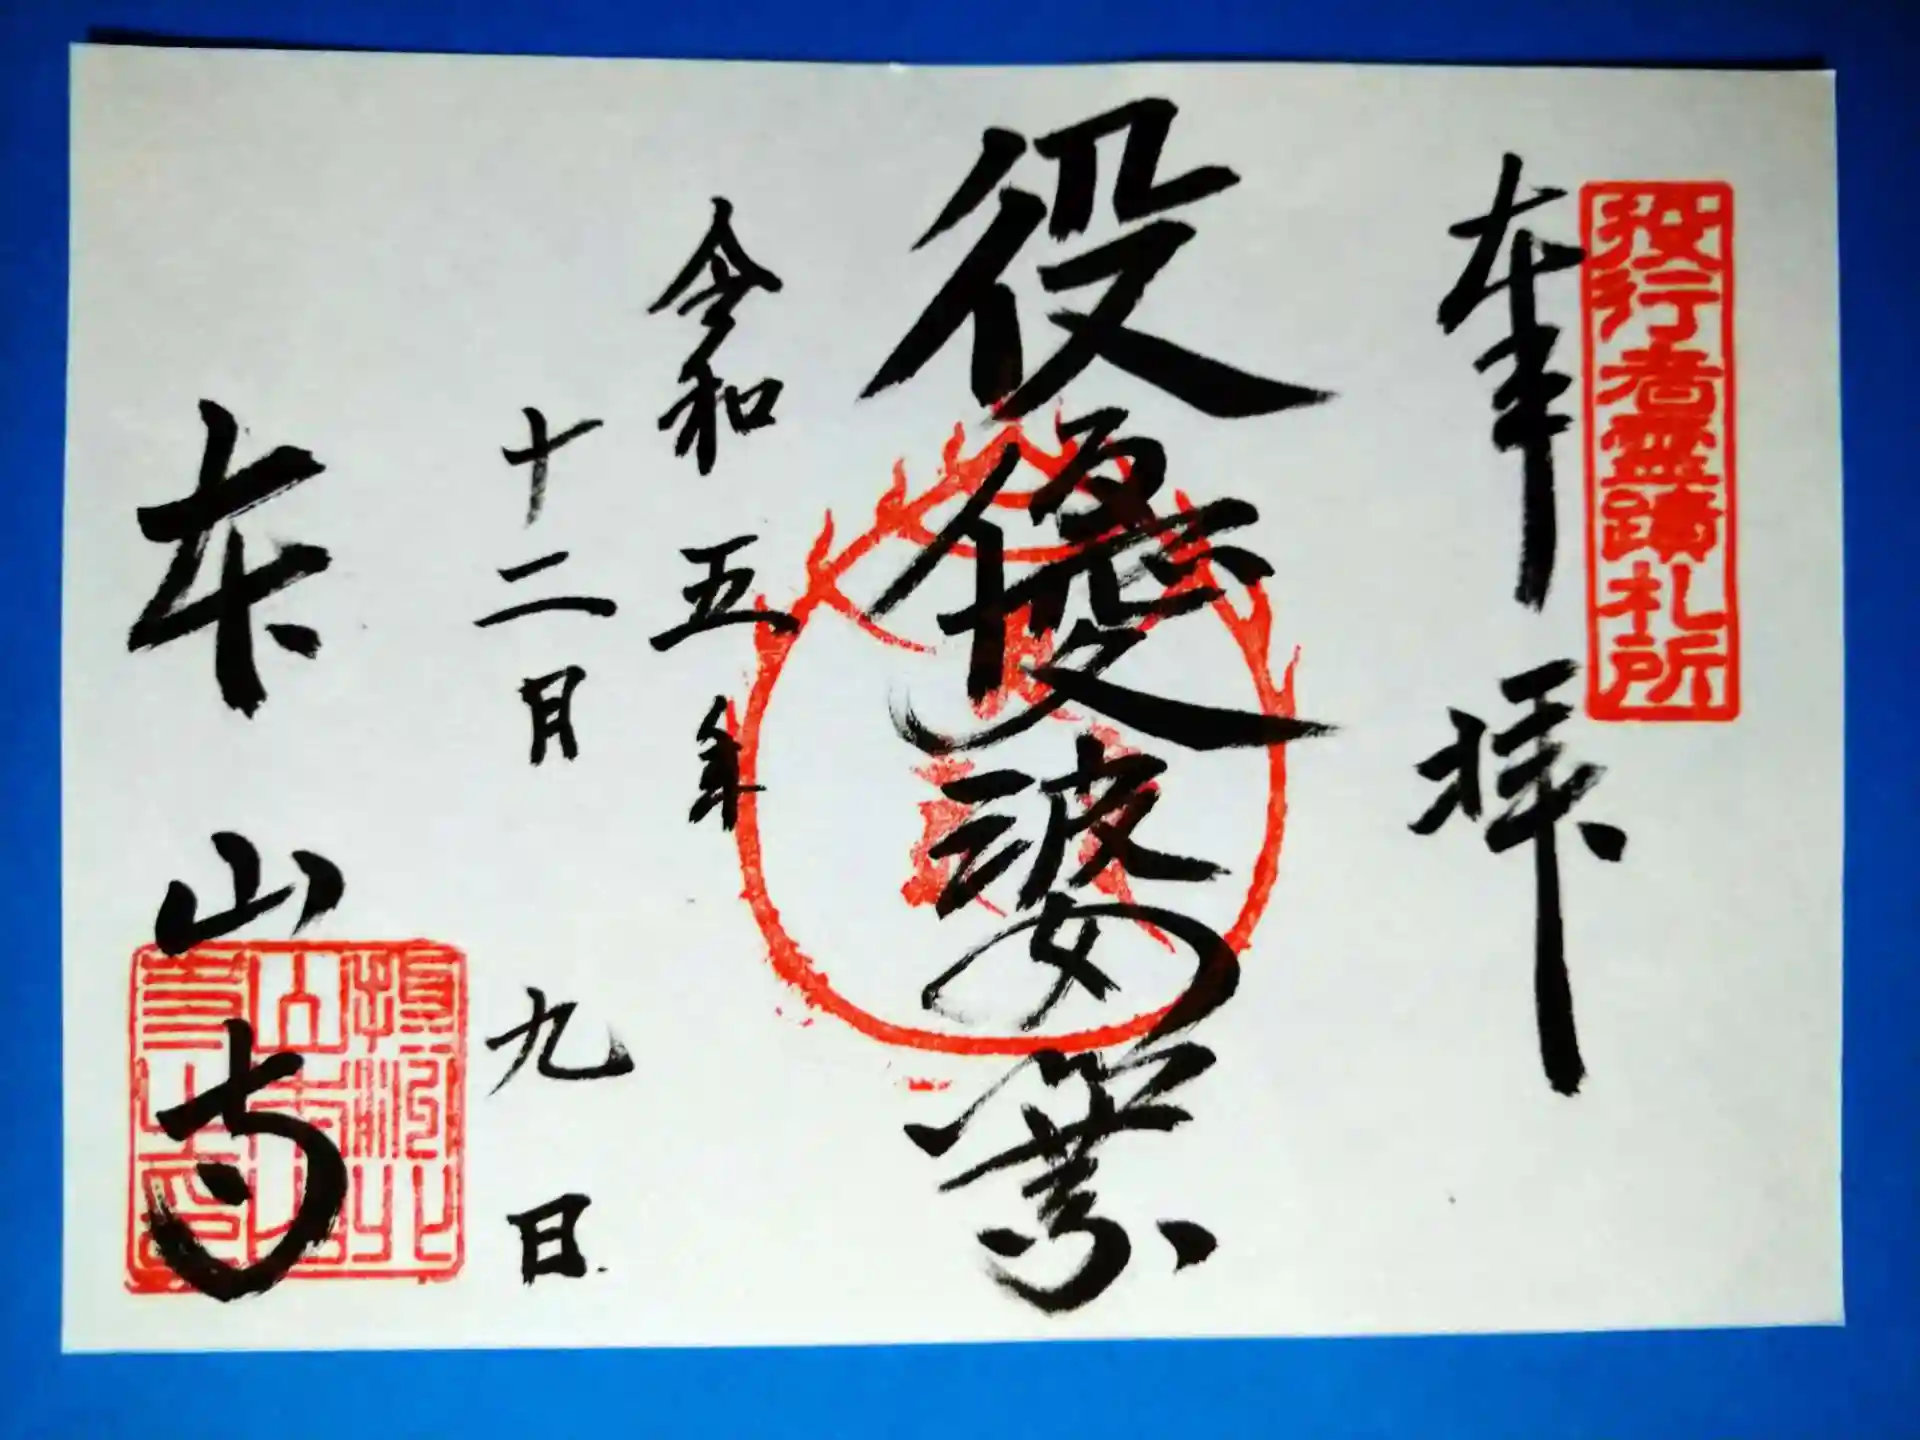 役行者霊蹟札所
奉拝
役優婆塞
令和五年
十二月九日
本山寺